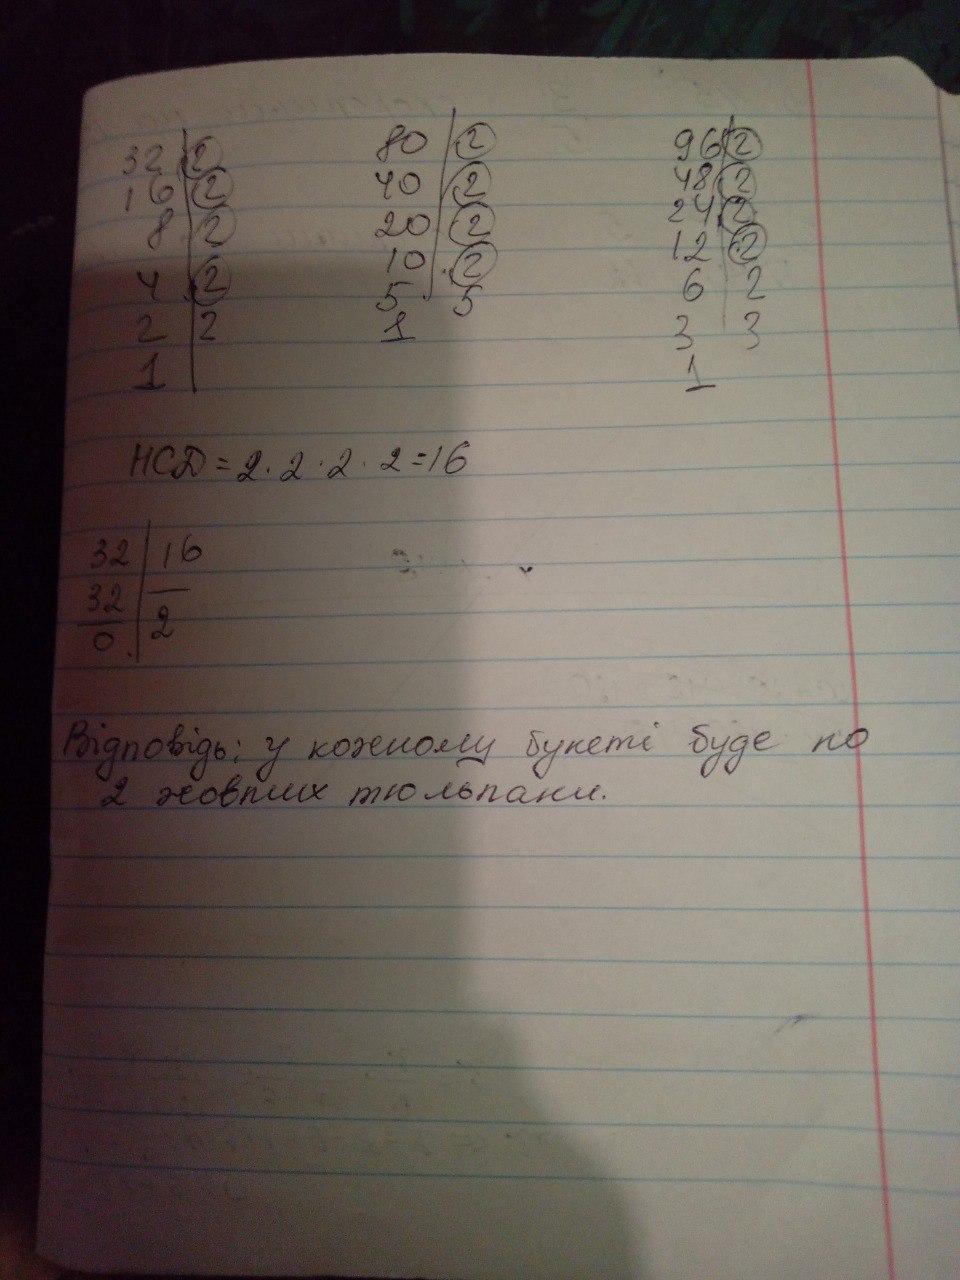 32 2 80 2 96 2
16 2 40 2 48 2
8 2 20 2 24 2
4 2 10 2 12 2
2 2 5 5 6 2
1 1 3 3
1
НСД = 2 · 2 · 2 · 2 = 16
32 16
32 2
0
Відповідь: у кожному букеті буде по
2 жовтих тюльпани.